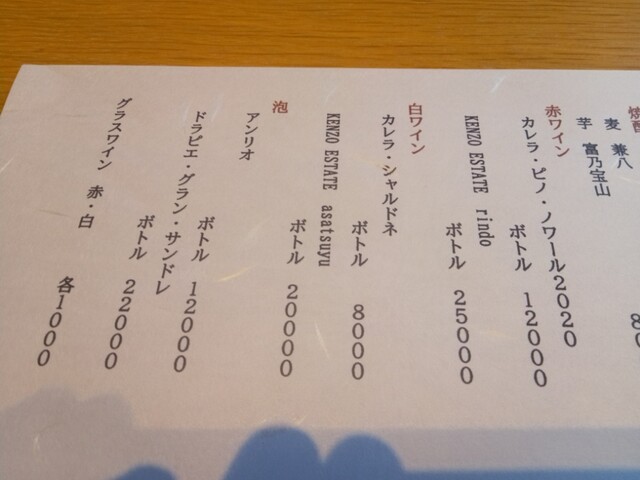 焼酎
麦 兼八
芋 富乃宝山
赤ワイン
カレラ・ピノ・ノワール2020
ボトル 12000
KENZO ESTATE rindo
ボトル 25000
白ワイン
カレラ・シャルドネ
ボトル 8000
KENZO ESTATE asatsuyu
ボトル 20000
泡
アンリオ
ボトル 12000
ドラピエ・グラン・サンドレ
ボトル 22000
グラスワイン 赤・白
各1000